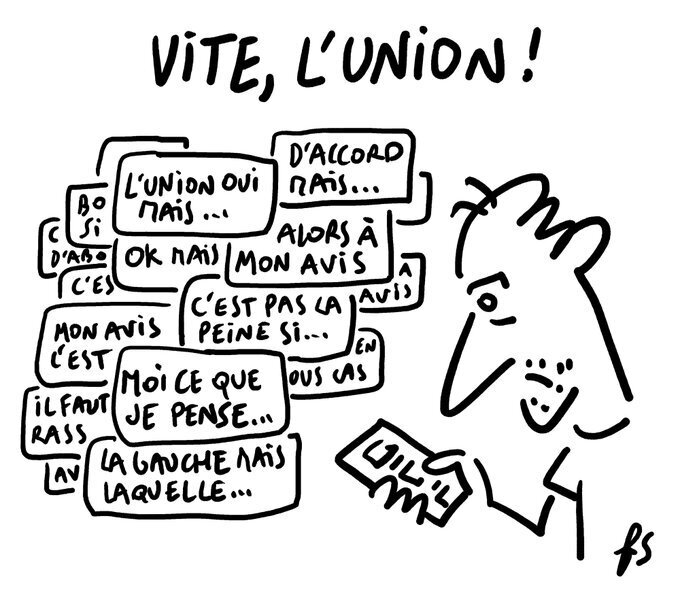 VITE, L'UNION !
D'ACCORD
MAIS...
L'UNION OUI
MAIS...
BO
SI
C
D'ABO
ALORS À
MON AVIS
OK MAIS
C'ES
A
AVIS
C'EST PAS LA
PEINE SI...
MON AVIS
L'EST
EN
OUS CAS
MOI CE QUE
JE PENSE...
IL FAUT
RASS
AV
LA GAUCHE MAIS
LAQUELLE...
fs